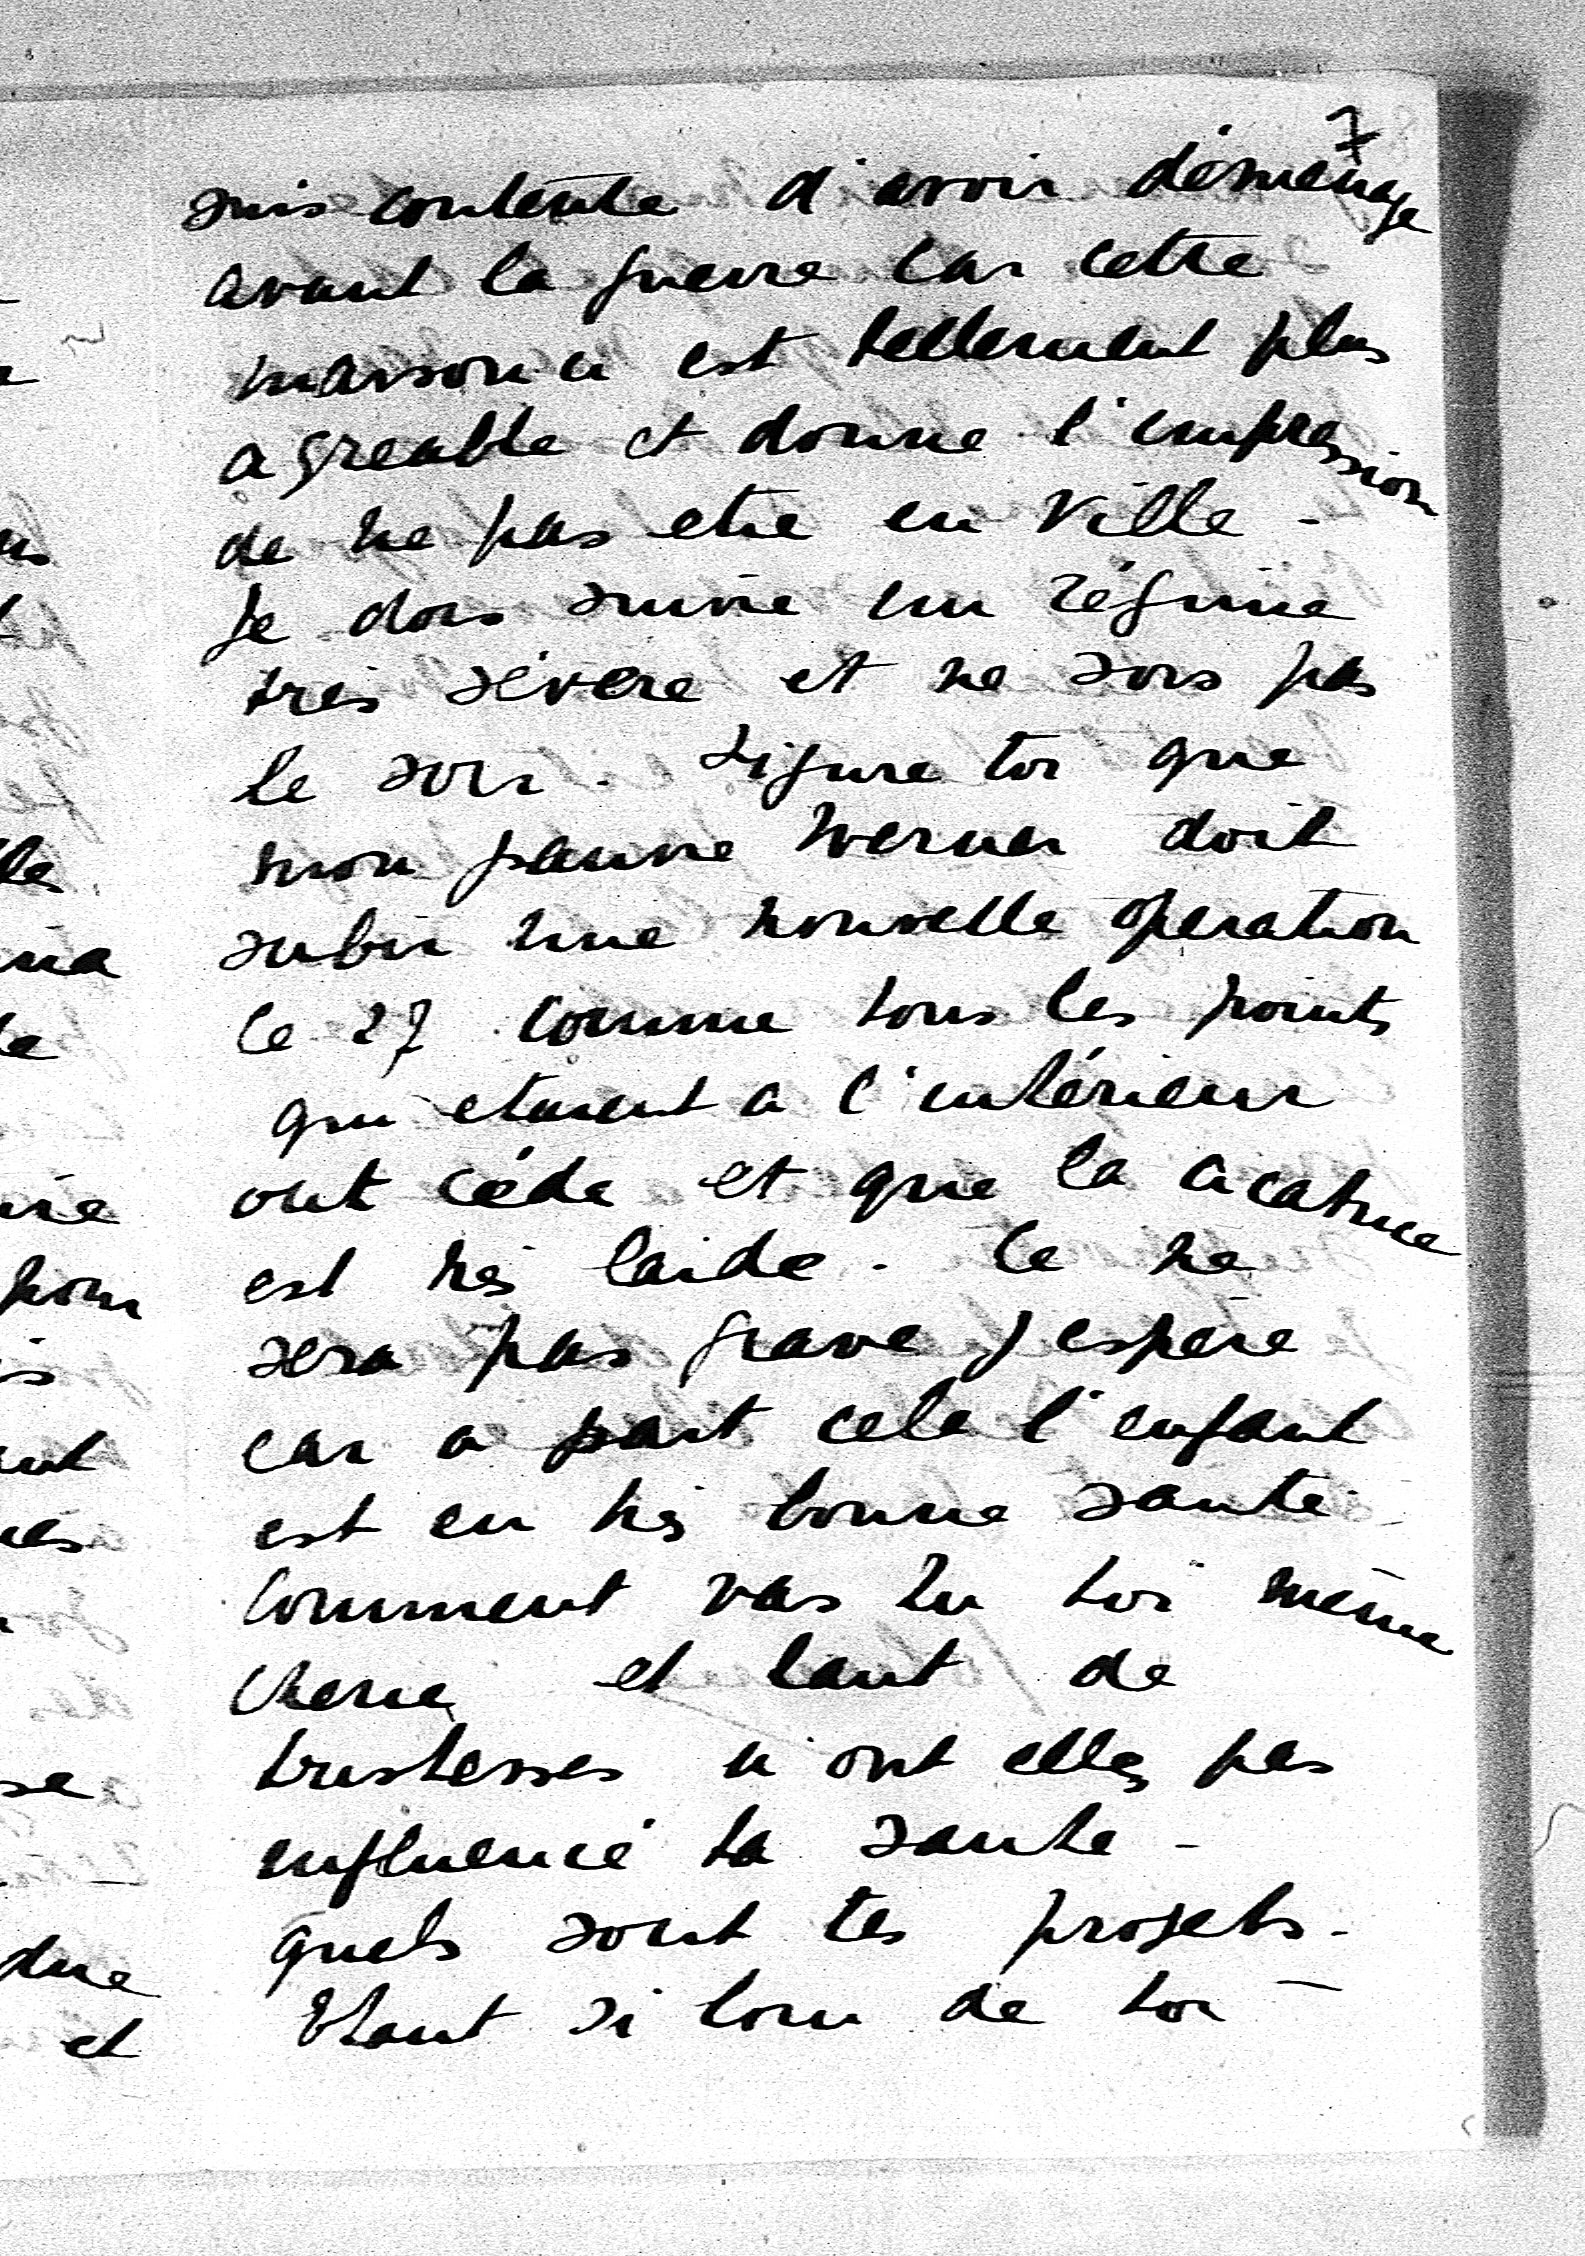 7
suis contente d'avoir démenage
avant la guerre car cette
maison ci est tellement plus
agreable et donne l'impression
de ne pas etre en ville -
Je dois suivre un régime
très sévère et ne sors pas
le soir. Figure toi que
mon pauvre Werner doit
subir une nouvelle operation
le 27 comme tous les points
qui etaient a l'intérieur
ont cédé et que la cicatrice
est très laide. Ce ne
sera pas grave j'espère
car a part cela l'enfant
est en très bonne santé
Comment vas tu toi même
Cherie et tant de
tristesses n'ont elles pas
influencé ta sante -
quels sont tes projets -
Etant si loin de toi